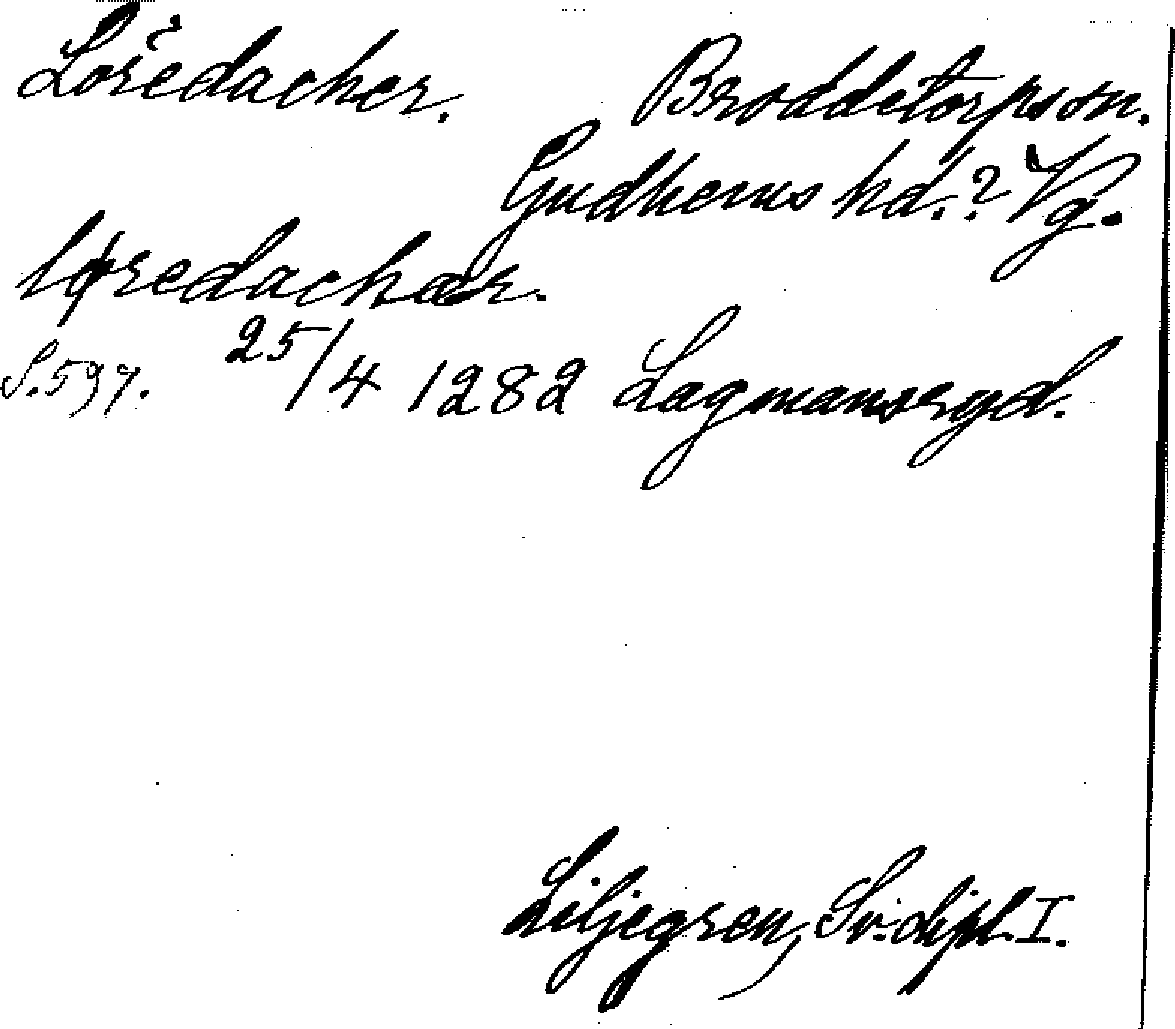 Löredacher. Broddetorpson.
Gudhems hd.? Vg.
løredachær.
S.597. 25/4 1282 Lagmansryd.
Liljegren, Sv. dipl. I.